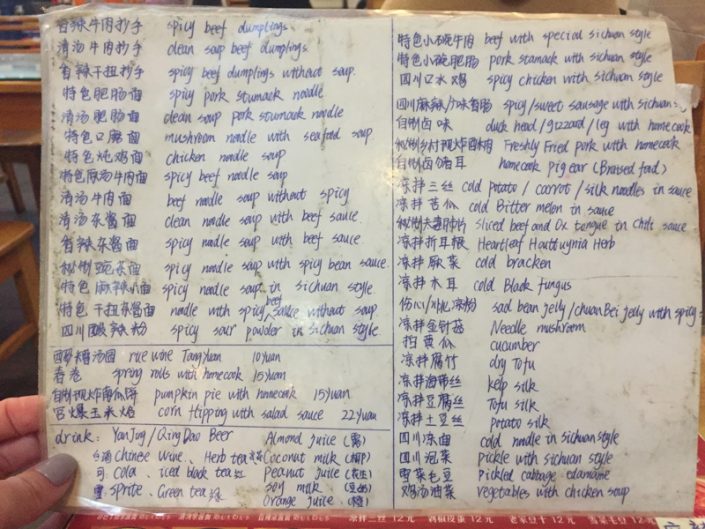 香辣牛肉抄手 spicy beef dumplings
清汤牛肉抄手 clean soup beef dumplings.
香辣干扣抄手 spicy beef dumplings without soup.
特色肥肠面 spicy pork stomack noodle
清汤肥肠面 clean soup pork stomack noodle
特色口蘑面 mushroom noodle with seafood soup
特色炖鸡面 chicken noodle soup
特色麻汤牛肉面 spicy beef noodle soup
清汤牛肉面 beef noodle soup without spicy
清汤杂酱面 clean noodle soup with beef sauce
香辣杂酱面 spicy noodle soup with beef sauce.
秘制豌杂面 spicy noodle soup with spicy bean sauce.
特色麻辣小面 spicy noodle soup in sichuan style.
特色干扣杂酱面 noodle with spicy beef sauce without soup
四川酸辣粉 spicy sour powder in sichuan style.
醪糟汤圆 rice wine Tangyuan 10yuan
春卷 spring rolls with homecook 15yuan
自制现炸南瓜饼 pumpkin pie with homecook 15yuan
宫爆玉米烙 corn Htipping with salad sauce 22yuan
drink: YanJing/QingDao Beer Almond juice (露)
Chinese wine.. Herb tea Coconut milk (椰)
可 Cola . iced black tea 红 Peanut juice (花生)
雪 sprite . Green tea 绿 Soy milk (豆奶)
orange juice (橙)
特色小碗牛肉 beef with special sichuan style
特色小碗肥肠 pork stamack with sichuan style
四川口水鸡 spicy chicken with sichuan style
四川麻辣/广味香肠 spicy/sweet sausage with sichuan s.
自制卤味 duck head/gizzard/leg with homecook
秘制乡村现炸酥肉 Freshly Fried pork with homecook
自制卤猪耳 homecook pig ear (Braised food)
凉拌三丝 cold potato / carrot /silk noodles in sauce
凉拌苦瓜 cold Bitter melon in sauce
秘制夫妻肺片 sliced beef and Ox tengue in Chili sauce
凉拌折耳根 Heartleaf Houttuynia Herb
凉拌蕨菜 cold bracken
凉拌木耳 cold Black fungus
伤心/川北凉粉 sad bean jelly/chuanBei jelly with spicy
凉拌金针菇 Needle mushroom
拍黄瓜 cucumber
凉拌腐竹 dry Tofu
凉拌海带丝 kelp silk
凉拌豆腐丝 Tofu silk
凉拌土豆丝 potato silk
四川凉面 cold noodle in sichuan style
四川泡菜 pickle with sichuan style
雪菜毛豆 pickled cabbage edamame
鸡汤油菜 vegetables with chicken soup
凉拌三丝 12元 12元 老家豆干 12元